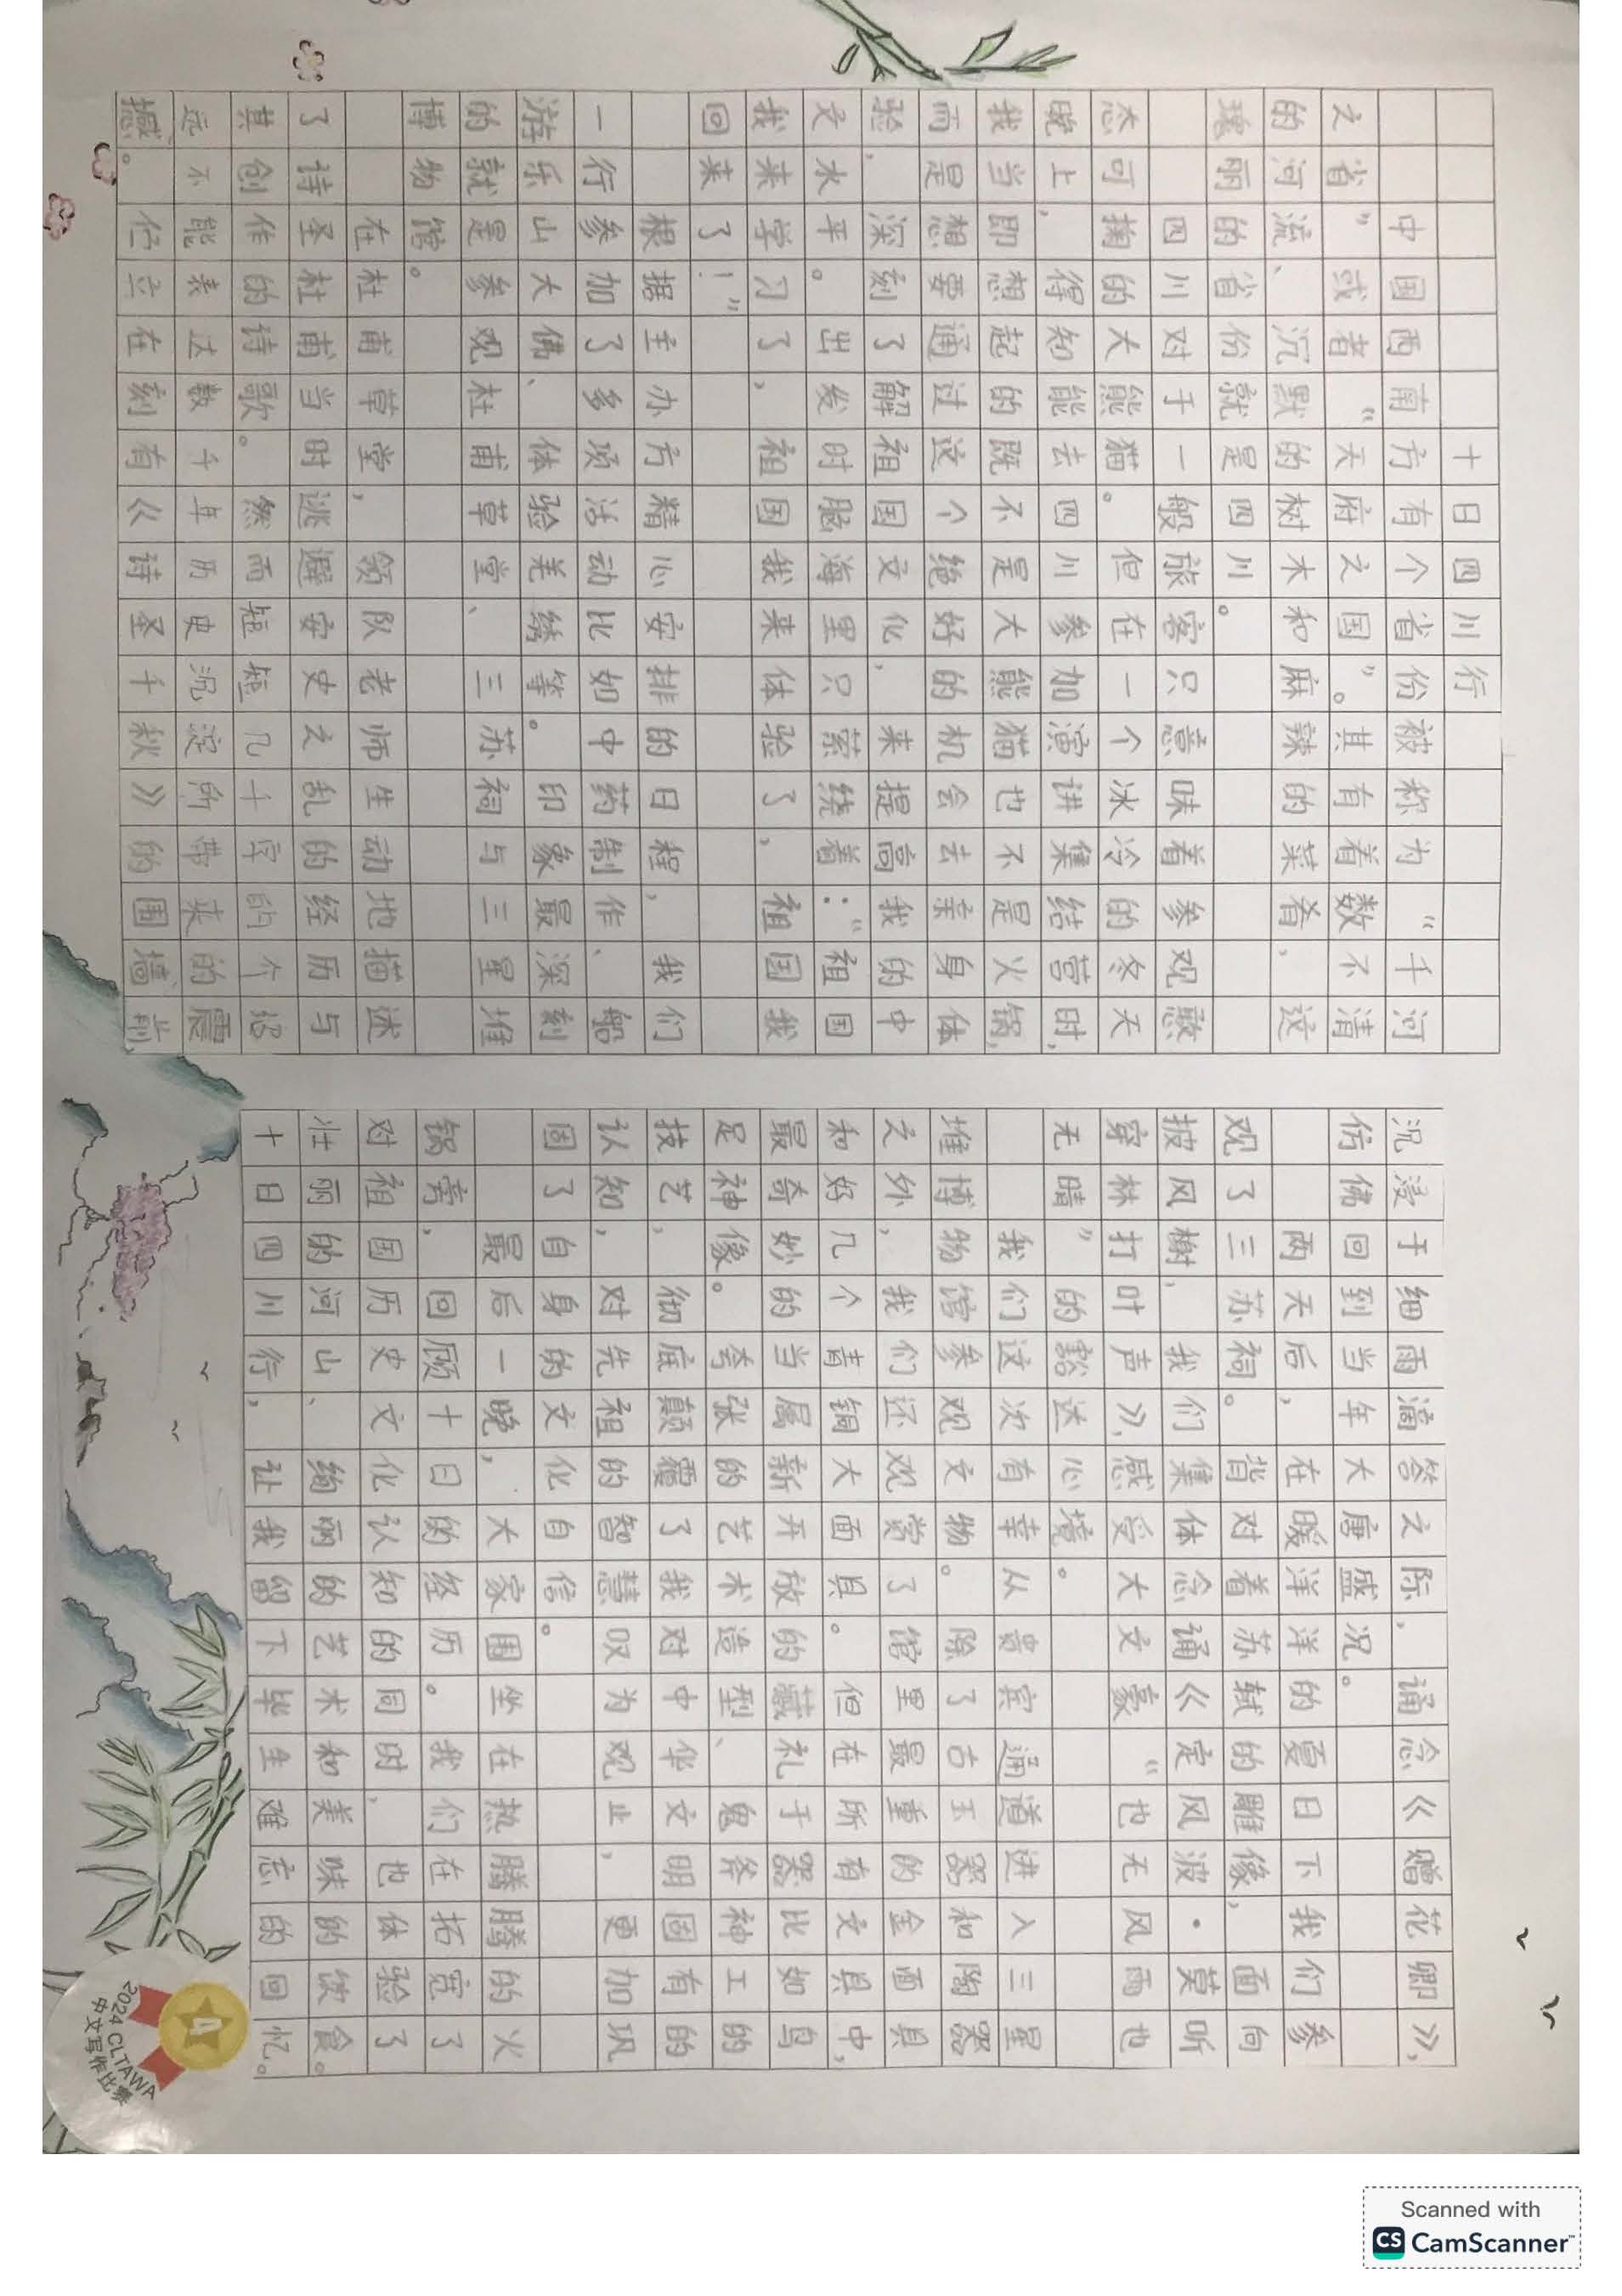 十日四川行
中国西南方有个省份被称为“千河
之省”或者“天府之国”。其有着数不清
的河流、沉默的树木和麻辣的菜肴,这
瑰丽的省份就是四川。
四川对于一般旅客只意味着参观憨
态可掬的大熊猫。但在一个冰冷的冬天
晚上,得知能去四川参加演讲集结营时,
我当即想起的既不是大熊猫也不是火锅,
而是想要通过这个绝好的机会去亲身体
验,深刻了解祖国文化,来提高我的中
文水平。出发时脑海里只萦绕着:“祖国
我来学习了,祖国我来体验了,祖国我
回来了!”
根据主办方精心安排的日程,我们
一行参加了多项活动比如中药制作、船
游乐山大佛、体验羌绣等。印象最深刻
的就是参观杜甫草堂、三苏祠与三星堆
博物馆。
在杜甫草堂,领队老师生动地描述
了诗圣杜甫当时逃避安史之乱的经历与
其创作的诗歌。然而短短几十字的介绍
远不能表达数千年历史沉淀所带来的震
撼。伫立在刻有《诗圣千秋》的围墙前,
沉浸于细雨滴答之际,诵念《赠花卿》,
仿佛回到当年大唐盛况。
两天后,在暖洋洋的夏日下我们参
观了三苏祠。背对着苏轼的雕像,面向
披风榭,我们集体念诵《定风波·莫听
穿林打叶声》,感受大文豪“也无风雨也
无晴”的豁达心境。
我们这次有幸从贵宾通道进入三星
堆博物馆参观文物。除了古玉器和陶器
之外,我们还观赏了馆里最重的金面具
和好几个青铜大面具。但在所有文具中,
最奇妙的当属新开放的藏礼于器比如鸟
足神像。夸张的艺术造型、鬼斧神工的
技艺,彻底颠覆了我对中华文明固有的
认知,对先祖的智慧叹为观止,更加巩
固了自身的文化自信。
最后一晚,大家围坐在热腾腾的火
锅旁,回顾十日的经历。我们在拓宽了
对祖国历史文化认知的同时,也体验了
壮丽的河山、绚丽的艺术和美味的饮食。
十日四川行,让我留下毕生难忘的回忆。
4
2024 CLTAWA
中文写作比赛
Scanned with
CS CamScanner™